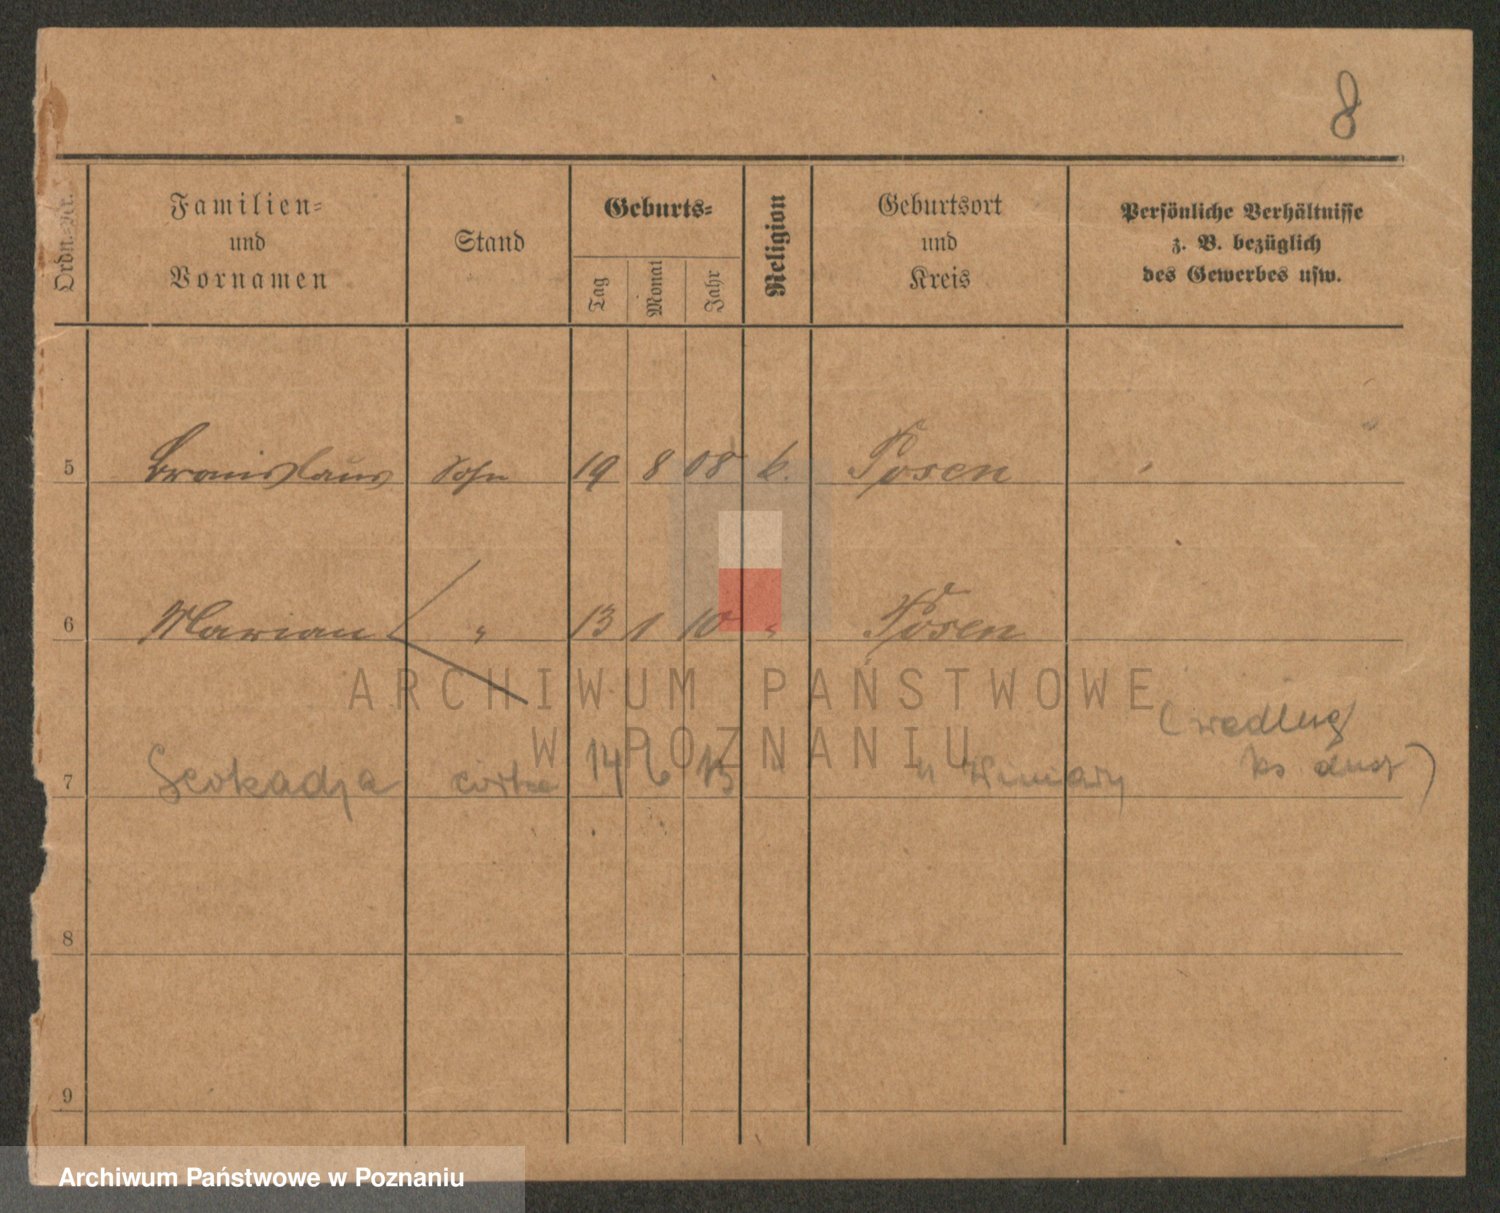 8
Ordn.-Nr.
Familien-
und
Vornamen
Stand
Geburts-
Tag
Monat
Jahr
Religion
Geburtsort
und
Kreis
Persönliche Verhältnisse
z. B. bezüglich
des Gewerbes usw.
5 Bronislaus Sohn 19 8 08 k. Posen
6 Marian " 13 1 10 " Posen
(według
7 Leokadja córka 14 6 13 " " Winiary ks. )
8
9
ARCHIWUM PAŃSTWOWE
W POZNANIU
Archiwum Państwowe w Poznaniu